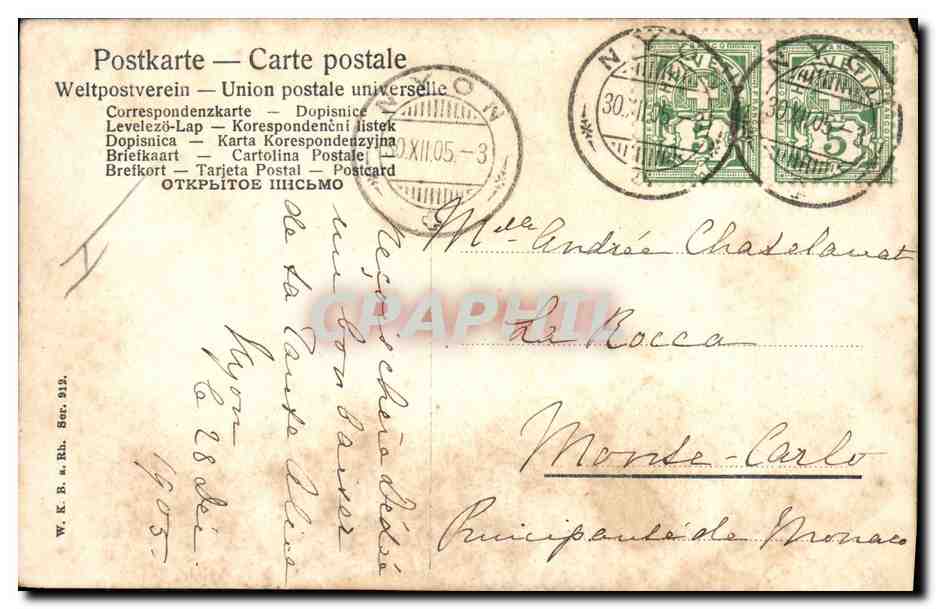 Postkarte — Carte postale
Weltpostverein — Union postale universelle
Correspondenzkarte — Dopisnice
Levelezö-Lap — Korespondenční listek
Dopisnica — Karta Korespondenzyjna
Briefkaart — Cartolina Postale
Brefkort — Tarjeta Postal — Postcard
ОТКРЫТОЕ ПИСЬМО
NYON
30.XII.05.-3
NYON
30.XII.05
HELVETIA
FRANCO
5
NYON
30.XII.05.-
HELVETIA
FRANCO
5
Melle Andrée Chaselanat
La Rocca
Monte-Carlo
Principauté de Monaco
Reçois chère Dédée
un bon baiser
de ta Tante Alice
Nyon
Le 28 Déc.
1905.
W. K. B. a. Rh. Ser. 912.
CPARHIL